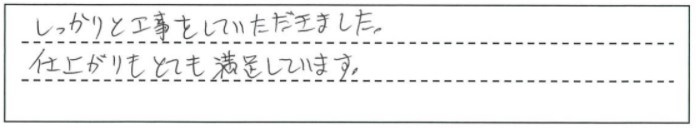 しっかりと工事をしていただきました。
仕上がりもとても満足しています。